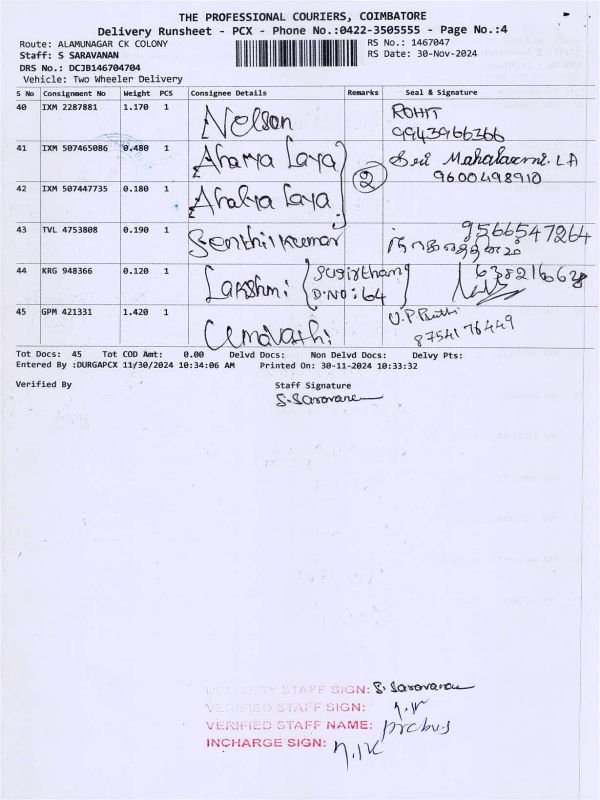 THE PROFESSIONAL COURIERS, COIMBATORE
Delivery Runsheet - PCX - Phone No.:0422-3505555 - Page No.:4
Route: ALAMUNAGAR CK COLONY RS No.: 1467047
Staff: S SARAVANAN RS Date: 30-Nov-2024
DRS No.: DCJB146704704
Vehicle: Two Wheeler Delivery
S No Consignment No Weight PCS Consignee Details Remarks Seal & Signature
40 IXM 2287881 1.170 1 Nelson ROHIT
9943966366
41 IXM 507465086 0.480 1 Sri Mahalaxmi. L A
9600498910
42 IXM 507447735 0.180 1 2
43 TVL 4753808 0.190 1 Senthilkumar 9566547264
44 KRG 948366 0.120 1 Lakshmi
D.NO: 64
45 GPM 421331 1.420 1 Umavathi
8754176449
Tot Docs: 45 Tot COD Amt: 0.00 Delvd Docs: Non Delvd Docs: Delvy Pts:
Entered By :DURGAPCX 11/30/2024 10:34:06 AM Printed On: 30-11-2024 10:33:32
Verified By Staff Signature
S. Saravanan
DELIVERY STAFF SIGN: S. Saravanan
VERIFIED STAFF SIGN:
VERIFIED STAFF NAME:
INCHARGE SIGN: